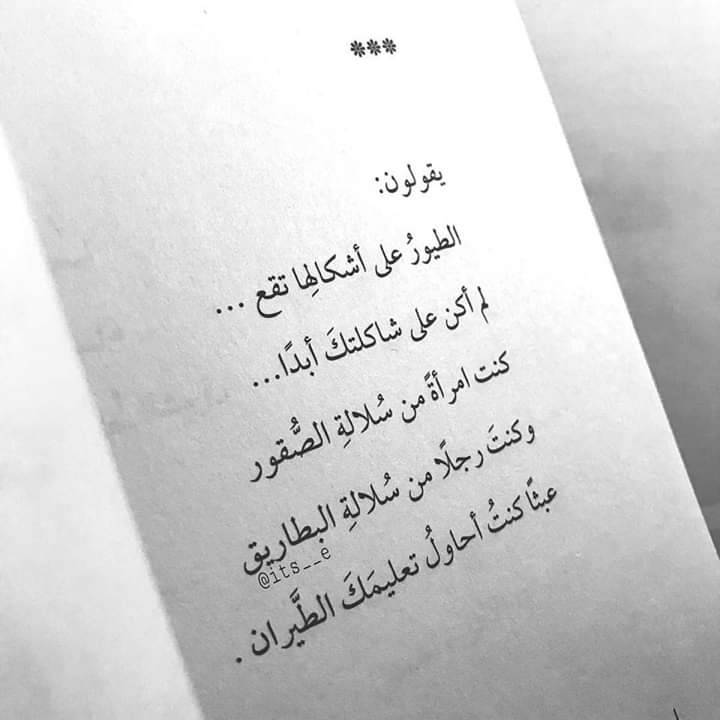 ***
يقولون:
الطيورُ على أشكالِها تقع ...
لم أكن على شاكلتكَ أبدًا...
كنت امرأةً من سُلالةِ الصُّقور
وكنتَ رجلًا من سُلالةِ البطاريق
@its__e
عبثًا كنتُ أحاولُ تعليمَكَ الطَّيران .